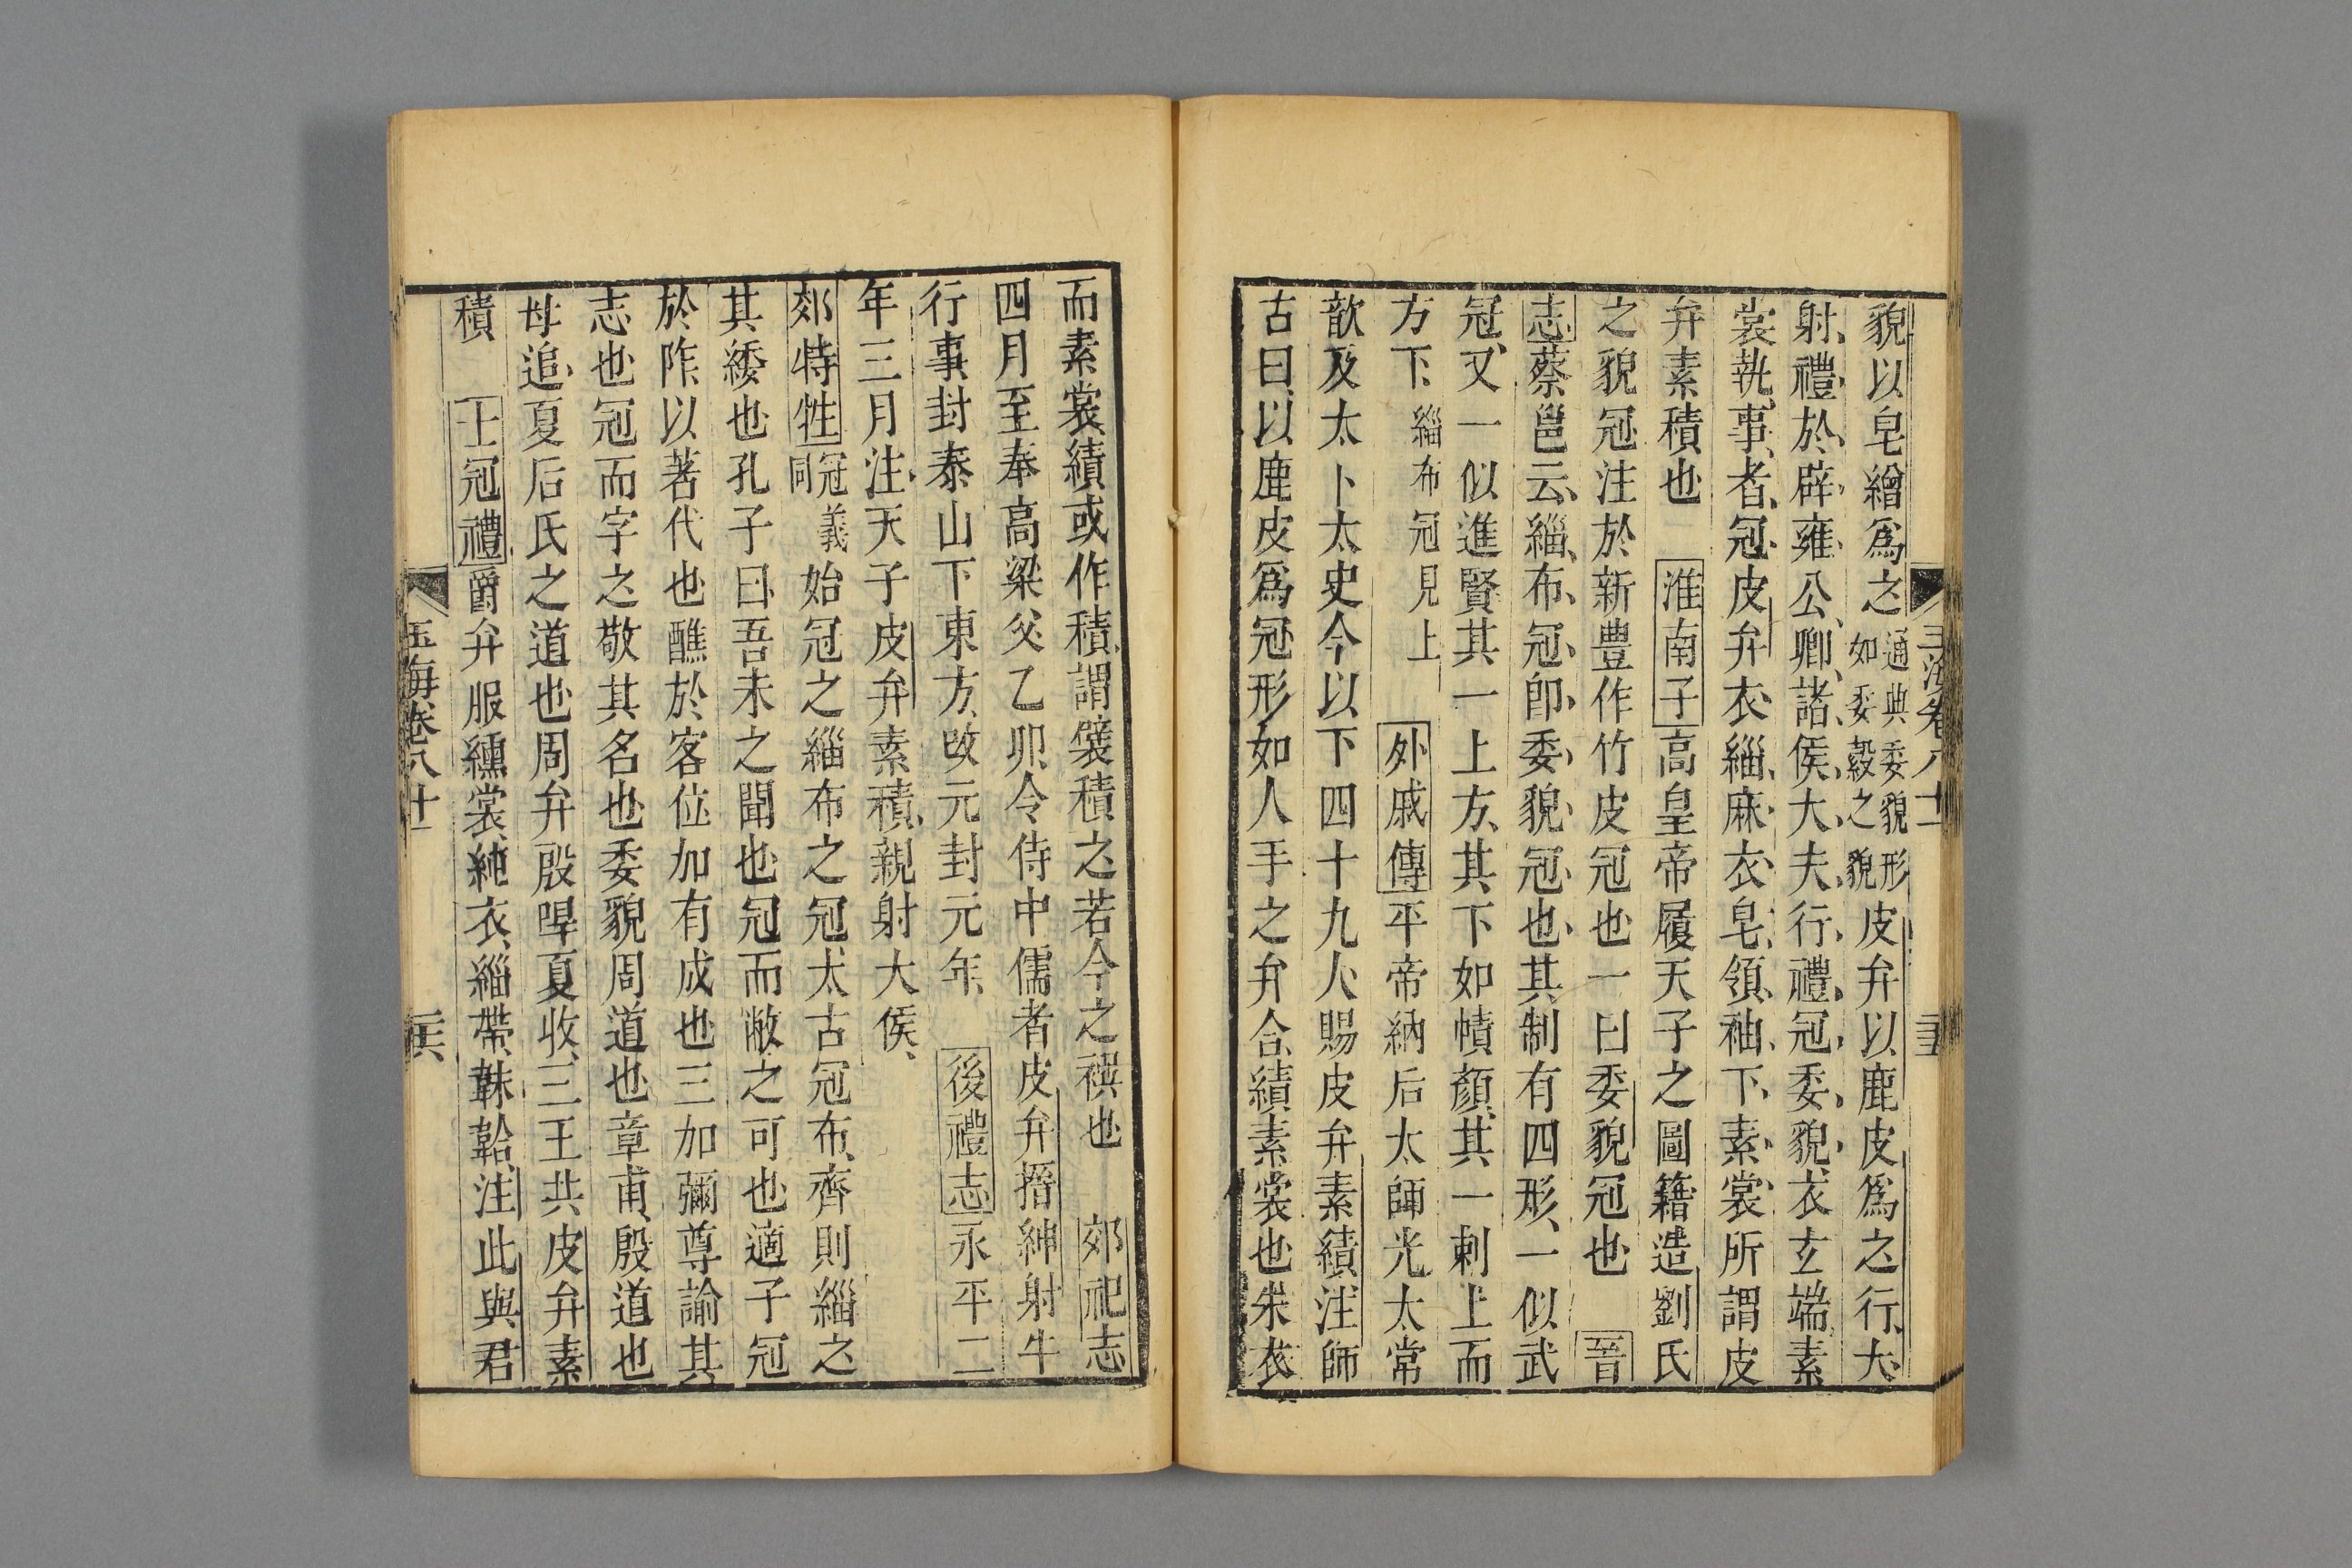 玉海卷八十一
貌以皂繒爲之通典委貌形如委縠之貌皮弁以鹿皮爲之行大
射禮於辟雍公卿諸侯大夫行禮冠委貌衣玄端素
裳執事者冠皮弁衣緇麻衣皂領袖下素裳所謂皮
弁素積也 淮南子高皇帝履天子之圖籍造劉氏
之貌冠注於新豊作竹皮冠也一曰委貌冠也 晉
志蔡邕云緇布冠卽委貌冠也其制有四形一似武
冠又一似進賢其一上方其下如幘顏其一刺上而
方下緇布冠見上 外戚傳平帝納后太師光太常
歆及太卜太史令以下四十九人賜皮弁素績注師
古曰以鹿皮爲冠形如人手之弁合績素裳也朱衣
而素裳績或作積謂襞積之若今之襈也 郊祀志
四月至奉高梁父乙卯令侍中儒者皮弁搢紳射牛
行事封泰山下東方改元封元年 後禮志永平二
年三月注天子皮弁素積親射大侯
郊特牲冠義同始冠之緇布之冠太古冠布齊則緇之
其緌也孔子曰吾未之聞也冠而敝之可也適子冠
於阼以著代也醮於客位加有成也三加彌尊諭其
志也冠而字之敬其名也委貌周道也章甫殷道也
母追夏后氏之道也周弁殷冔夏收三王共皮弁素
積 士冠禮爵弁服纁裳純衣緇帶韎韐注此與君
玉海卷八十一